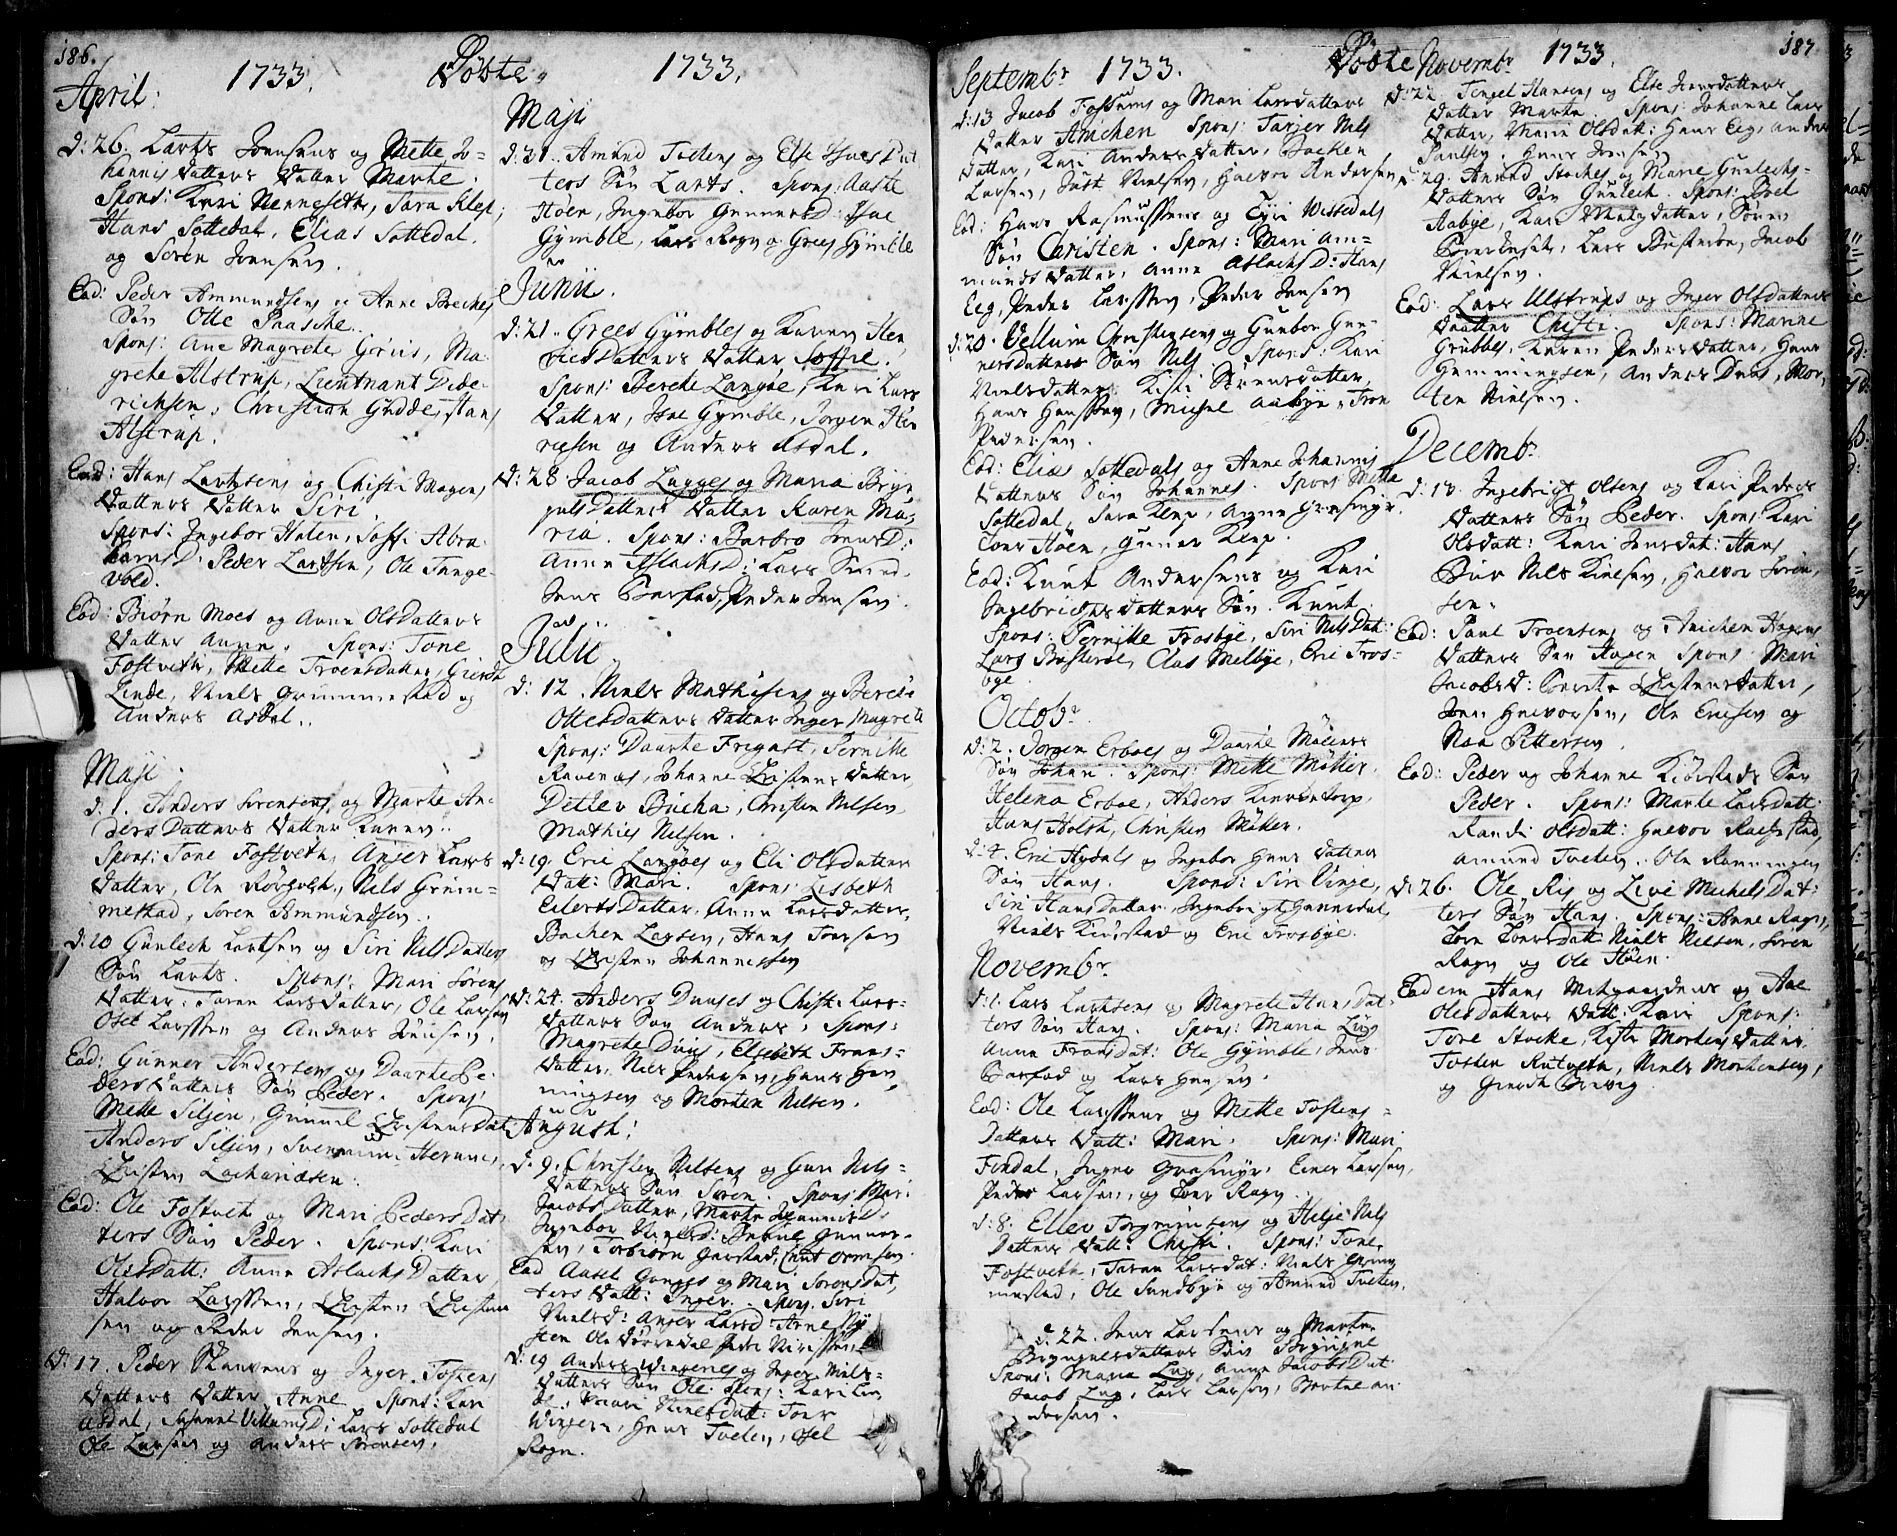 186.
1733.
Døbte.
1733.
April:
d: 26. Larts Jörensens og Mette Jo=
hannis Datters Datter Marte.
Spons: Kari Nenneseth, Sara Klep,
Hans Sottedal, Elias Sottedal,
og Sören Jensen.
Eod: Peder Ammundsens og Anne
Sön Otte Paaske.
Spons: Ane Magrete Goriis, Ma=
grete Alstrup, Lieutnant Dide=
richsen, Christian Gudde, Hans
Alstrup.
Eod: Hans Lartsens og Chisti Mogens
Datters Datter Siri.
Spons: Ingebor Holen, Soffi Abra=
hams D: Peder Lartsen, Ole Tange=
vold.
Eod: Biörn Moes og Anne Olsdatters
Datter Anne. Spons: Tone
Fostveth, Mette Troensdatter, Giersh
Linde, Niels Grimmestad og
Anders Asdal.
Maji
d. 1. Anders Sörensens og Marte An=
dersDatters Datter Karen.
Spons: Tone Fostveth, Anser Lars
Datter, Ole Rörgveth, Nils Grim=
mestad, Sören Ammundsen.
d: 10 Gunlech Lartsen og Siri Nils Datters
Sön Larts. Spons: Mari Sörens
Datter, Taran Larsdatter, Ole Larsen
Osel Larssen og Anders Jensen.
Eod: Gunner Andersens og Daarte Pe=
dersdatters Sön Peder. Spons:
Mette Siljen, Gunnil Christensdat
Anders Siljen, Svennum Herum,
Christen Zachariasen.
Eod: Ole Fostveth og Mari PedersDat
ters Sön Peder. Spons: Kari
Olesdatt: Anne Aslachs Datter,
Halvor Larssen, Christen Christen
sen og Peder Jensen.
d: 17. Peder Skanvens og Inger Tostens
Datters Datter Anne. Spons: Kari
Asdal, Susanne VillumsD: Lars Sottedal
Ole Larsen og Anders Sörensen.
Maji
d: 21. Amund Tostens og Else Isaes Dat
ters Sön Larts. Spons: Aaste
Höen, Ingebor GunnersD: Isac
Gymble, Lars Rogn og Grees Gymble
Junii.
d: 21. Grees Gymbles og Karen Hen
ricsDatters Datter Soffie.
Spons: Berete Langöe, Kari Lars
Datter, Isac Gymble, Jörgen Hen
ricsen og Anders Asdal.
d: 28 Jacob Lugges og Maria Bryn
gulsDatters Datter Karen Ma=
ria. Spons: Barbro JensD:
Anne AslachsD: Lars Smed,
Jens Barfod, Peder Jensen.
Julii
d: 12. Niels Mathisens og Berete
Ottesdatters Datter Inger Magrete
Spons: Daarte Fregast, Pernille
Ravenas, Johanne Christens Datter
Detlev Bucha, Christen Nilsen,
Mathies Nilsen.
d: 19. Eric Langöes og Eli Olsdatters
Datt: Mari. Spons: Lisbeth
Eilerts Datter, Anne Larsdatter,
Bachen Larsen, Hans Torsen
og Christen Johannessen
d: 24. Anders Duuses og Chisti Lars=
Datters Sön Anders. Spons:
Magrete Duus, Elsebeth Frans=
datter, Nils Pedersen, Hans Hen
ningsen og Morten Nilsen.
August:
d: 9. Christen Nilsens og Guri Nils=
Datters Sön Sören. Spons: Mari
JacobsDatter, Marte JohannisD:
Ingebor NielsD: Gunner=
sen, Torbiörn Gunstad, Cnut Ormsen.
Eod Axsel Gonges og Mari Sörensdat
ters Datt: Inger. Spons: Siri
NielsD: Anser LarsD: Arne
Ole Dörrendal Peder Nirissen.
d: 19 Anders Wingeries og Inger Niels=
Datters Sön Ole. Spons: Kari Lin
de, Kari Nielsdatt: Tone
Wingern, Hans Tveten, Osel
Rogn.
Septembr 1733.
Døbte
187
d: 13 Jacob Fossums og Mari Larsdatters
Datter Anichen Spons: Tarjer Nils
Datter, Kari Anders Datter, Bachen
Larsen, Just Nielsen, Halvor Andersen,
Eod: Hans Rasmussens og Eyri Wissedals
Sön Christen. Spons: Mari Am=
munds Datter, Anne AslachsD: Hans
Eeg, Peder Larssen, Peder Jensen
d: 20. Vellum Christensens og Gunbor Gun=
nersdatters Sön Nils. Spons: Kari
Nielsdatter, Kisti Sörensdatter,
Hans Hanssen, Michel Aabye, Tron
Pedersen.
Eod: Elias Sottedals og Anne Johannis
Datters Sön Johannes. Spons: Mette
Sottedal, Sara Klep, Anne Grasmyr,
Tone Höen, Gunner Klep.
Eod: Knut Andersens og Kari
Ingebrictsdatters Sön Knut.
Spons: Pernille Frosbye, Siri NilsDat:
Lars Busteröe, Clas Melbye, Eric Fros=
bye
Octobr
d: 2. Jörgen Erboes og Daarte Mölers
Sön Johan. Spons: Mette Möller,
Helena Erboe, Anders Kierretorp,
Hans Holst, Christen Möller.
d: 4. Eric Asdals og Ingebor Hans Datters
Sön Hans. Spons: Siri Vinge,
Siri HansDatter, Ingebrigt Gunnersdal,
Niels Kiörstad og Eric Frosbye.
Novembr.
d: 1. Lars Lartsens og Magrete HansDat
ters Sön Hans. Spons: Maria Lug
Anne FransDat: Ole Gymble, Jens
Barfod og Lars Hansen.
Eod: Ole Larssens og Mette Tostens=
Datters Datt: Mari. Spons: Mari
Findal, Inger Grasmyr, Einer Larsen,
Peder Larsen, og Tone Rogn.
d: 8. Ellev Torgrimsens og Helje Nils
Datters Datt: Chisti. Spons: Tone
Fostveth, Taran Larsdat: Niels Grim
mestad, Ole Sundbye og Amund Tveten.
d: 22. Jens Larsens og Marte
Bryngelsdatters Sön
Spons: Maria Lug, Anne JacobsDat:
Jacob Lug, Lars Larsen, An
dersen.
Novembr 1733.
d: 22. Tengel Hansens og Else Iversdatters
Datter Marte. Spons: Johanne Lars
Datter, Maria Olsdatt: Hans Eeg, Anders
Paulsen, Hans Jensen
d: 29. Amund Stoches og Marie Gunlechs=
Datters Sön Gunlech. Spons: Joel
Aabye, Kari Datter, Sören
Lars Busteröe, Jacob
Nielsen.
Eod: Lars Ulstrups og Inger Olsdatters
Daatter Chisti. Spons: Marine
Grubbes, Karen Pedersdatter, Hans
Henningsen, Anders Duus, Mor=
ten Nielsen.
Decembr
d: 13. Ingebrigt Olsens og Kari Peders
Datters Sön Peder. Spons: Kari
Olsdatt: Kari Jonsdat: Hans
Bör Nils Nielsen, Halvor Sören
sen.
Eod: Paul Troensens og Anichen Hagens
Datters Sön Hagen Spons: Mari
JacobsD: Christensdatter,
Jon Halvorsen, Ole Ericsen og
Noa Pettersen.
Eod: Peder og Johanne Kiörstads Sön
Peder. Spons: Marte Larsdatt:
Randi Olsdatt: Halvor Rachestad,
Amund Tveten, Ole Ramningen
d: 26. Ole Riis og Live Michels Dat=
ters Sön Hans. Spons: Anne Rogn,
Tone Torsdatt: Niels Nilsen, Sören
Rogn og Ole Höen.
Eodem Hans Mitgaardens og Aae
Olesdatters Datt: Kari Spons:
Tore Stocke, Kisti MortensDatter,
Tosten Rutveth, Niels Mortensen,
og Giersh Grevig.